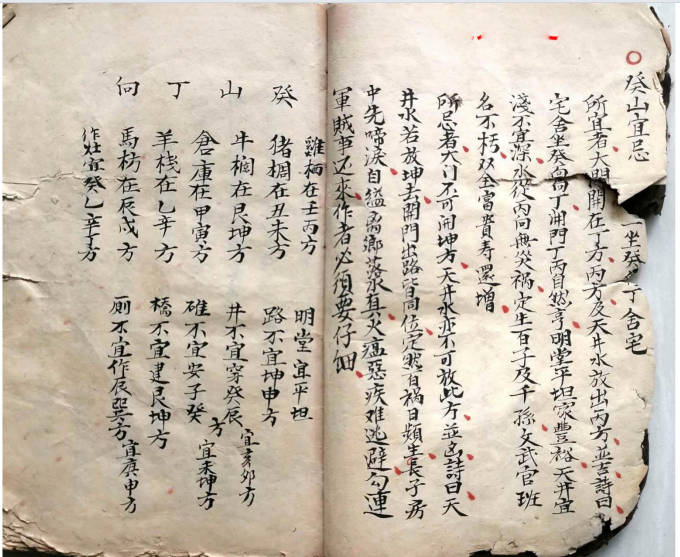 癸山宜忌 一坐癸丁舍宅
所宜者大門開在丁方丙方及天井水放出丙方並吉詩曰
宅舍坐癸向丁開門丁丙自然亨明堂平坦家豐裕天井宜
淺不宜深水從丙向無災禍定生百子及千孫文武官班
名不朽双全富貴寿還增
所忌者大门不可開坤方天井水亦不可放此方並凶詩曰天
井水若放坤去開門出路皆同位定然百禍日頻生長子房
中先啼淚自縊离鄉落水其火瘟惡疾难逃避勾連
軍賊事近來作者必須要仔細
癸山丁向
雞栖在壬丙方 明堂宜平坦
猪椆在丑未方 路不宜坤申方
牛椆在艮坤方 井不宜穿癸辰方 宜亥卯方
倉庫在甲寅方 碓不宜安子癸方 宜未坤方
羊栈在乙辛方 橋不宜建艮坤方
馬枋在辰戌方 厠不宜作辰巽方 宜庚申方
作灶宜癸乙辛丁方